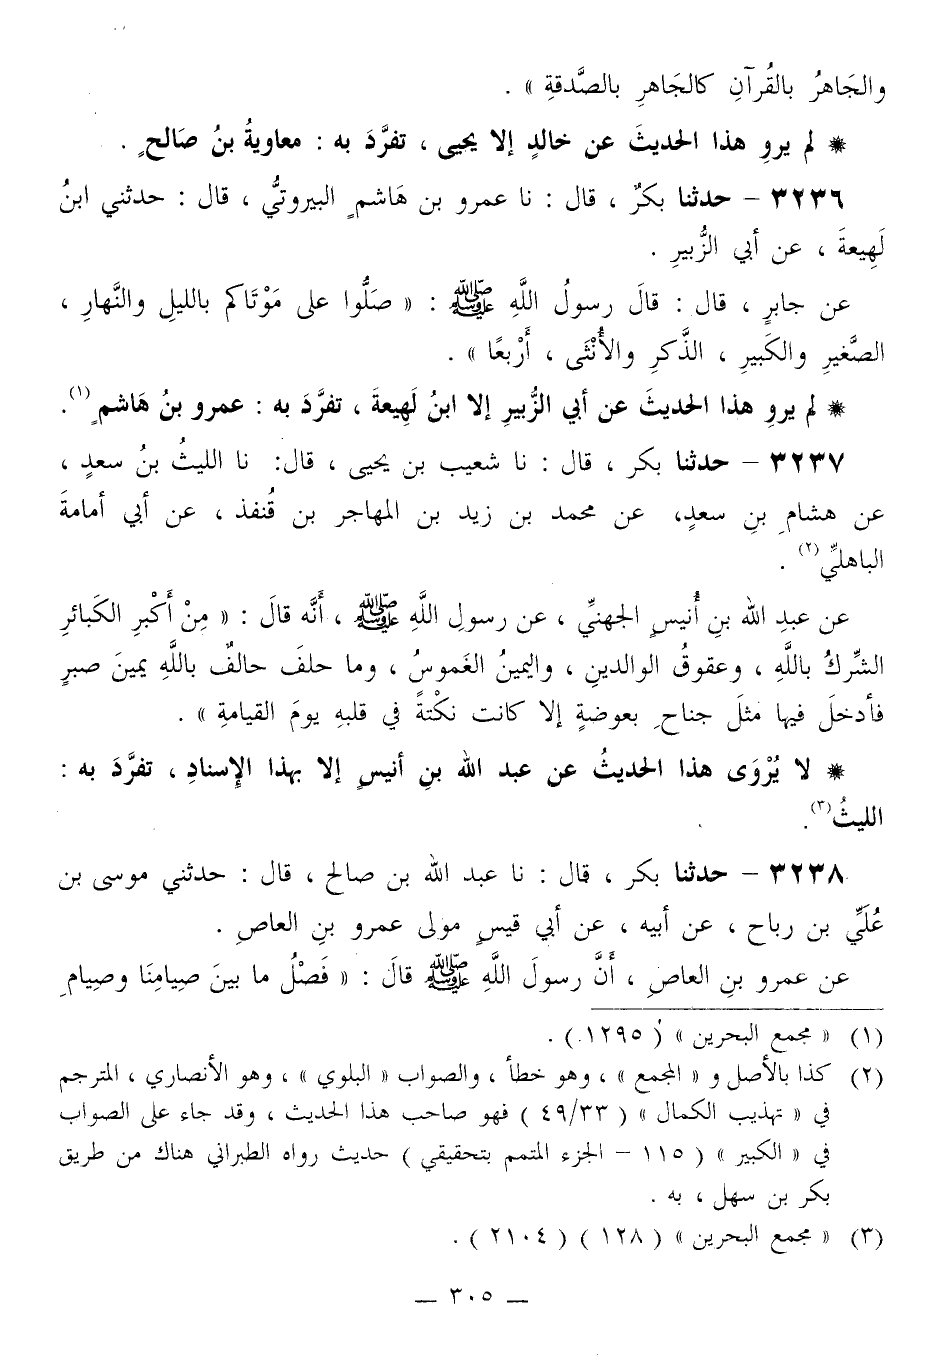 والجَاهرُ بالقُرآنِ كالجَاهرِ بالصَّدقةِ » .
✵ لم يروِ هذا الحديثَ عن خالدٍ إلا يحيى ، تفرَّدَ به : معاويةُ بنُ صَالحٍ .
٣٢٣٦ - حدثنا بكرٌ ، قال : نا عمرو بن هَاشمٍ البيروتيُّ ، قال : حدثني ابنُ
لَهِيعةَ ، عن أبي الزُّبيرِ .
عن جابرٍ ، قال : قالَ رسولُ اللَّهِ ﷺ : « صَلُّوا على مَوْتَاكم بالليلِ والنَّهارِ ،
الصَّغيرِ والكَبيرِ ، الذَّكرِ والأُنْثَى ، أَرْبعًا » .
✵ لم يروِ هذا الحديثَ عن أبي الزُّبيرِ إلا ابنُ لَهِيعةَ ، تفرَّدَ به : عمرو بنُ هَاشمٍ (١).
٣٢٣٧ - حدثنا بكر ، قال : نا شعيب بن يحيى ، قال: نا الليثُ بنُ سعدٍ ،
عن هشامِ بنِ سعدٍ، عن محمد بن زيد بن المهاجر بن قُنفذ ، عن أبي أمامةَ
الباهليِّ (٢) .
عن عبدِ الله بنِ أُنيسٍ الجهنيِّ ، عن رسولِ اللَّهِ ﷺ ، أَنَّه قالَ : « مِنْ أَكْبرِ الكَبائرِ
الشِّركُ باللَّهِ ، وعقوقُ الوالدينِ ، واليمينُ الغَموسُ ، وما حلفَ حالفٌ باللَّهِ يمينَ صبرٍ
فأدخلَ فيها مثلَ جناحِ بعوضةٍ إلا كانت نكْتةً في قلبهِ يومَ القيامةِ » .
✵ لا يُرْوَى هذا الحديثُ عن عبد الله بنِ أنيسٍ إلا بهذا الإسنادِ ، تفرَّدَ به :
الليثُ (٣).
٣٢٣٨ - حدثنا بكر ، قال : نا عبد الله بن صالح ، قال : حدثني موسى بن
عُلَيِّ بن رباح ، عن أبيه ، عن أبي قيسٍ مولى عمرو بنِ العاصِ .
عن عمرو بنِ العاصِ ، أَنَّ رسولَ اللَّهِ ﷺ قالَ : « فَصْلُ ما بينَ صيامنَا وصيامِ
(١) « مجمع البحرين » ( ١٢٩٥ ) .
(٢) كذا بالأصل و « المجمع » ، وهو خطأ ، والصواب « البلوي » ، وهو الأنصاري ، المترجم
في « تهذيب الكمال » ( ٤٩/٣٣ ) فهو صاحب هذا الحديث ، وقد جاء على الصواب
في « الكبير » ( ١١٥ - الجزء المتمم بتحقيقي ) حديث رواه الطبراني هناك من طريق
بكر بن سهل ، به .
(٣) « مجمع البحرين » ( ١٢٨ ) ( ٢١٠٤ ) .
— ٣٠٥ —